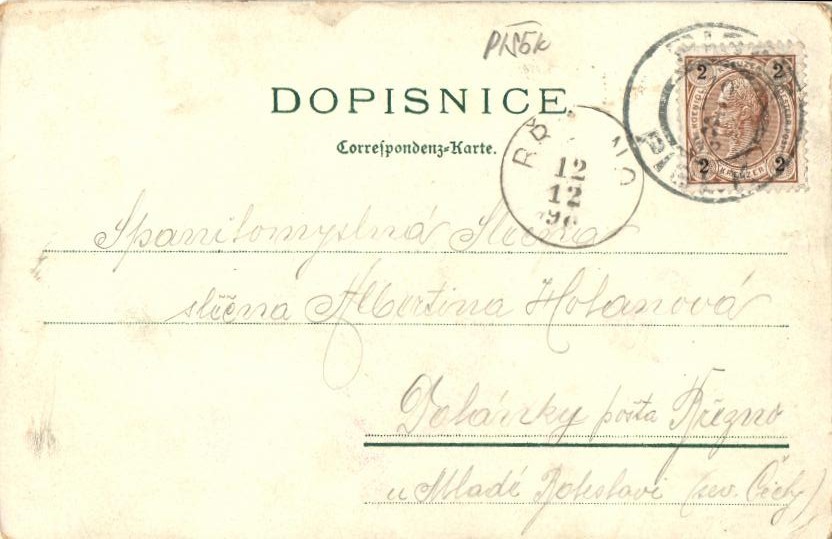 Písek
DOPISNICE.
Correspondenz-Karte.
2 KREUZER 2
2 KREUZER 2
PÍSEK
12
12
Slečna
slečna Albertina Holanová
Dolánky pošta Březno
u Mladé Boleslavi (sev. Čechy)